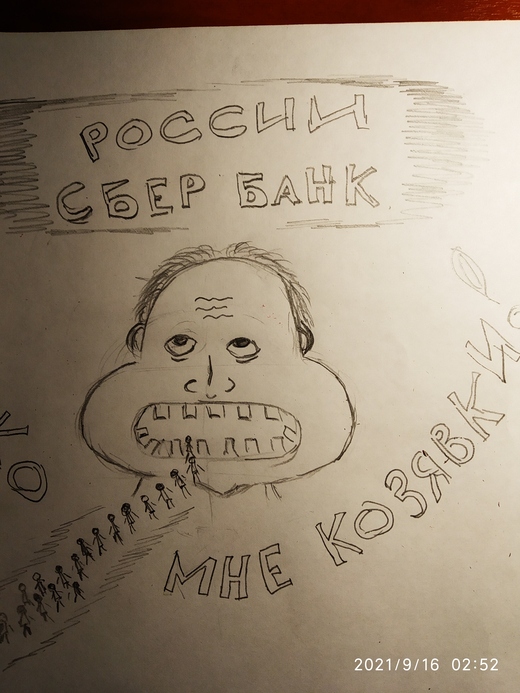 РОССИИ
СБЕР БАНК
МНЕ КОЗЯВКИ
2021/9/16 02:52